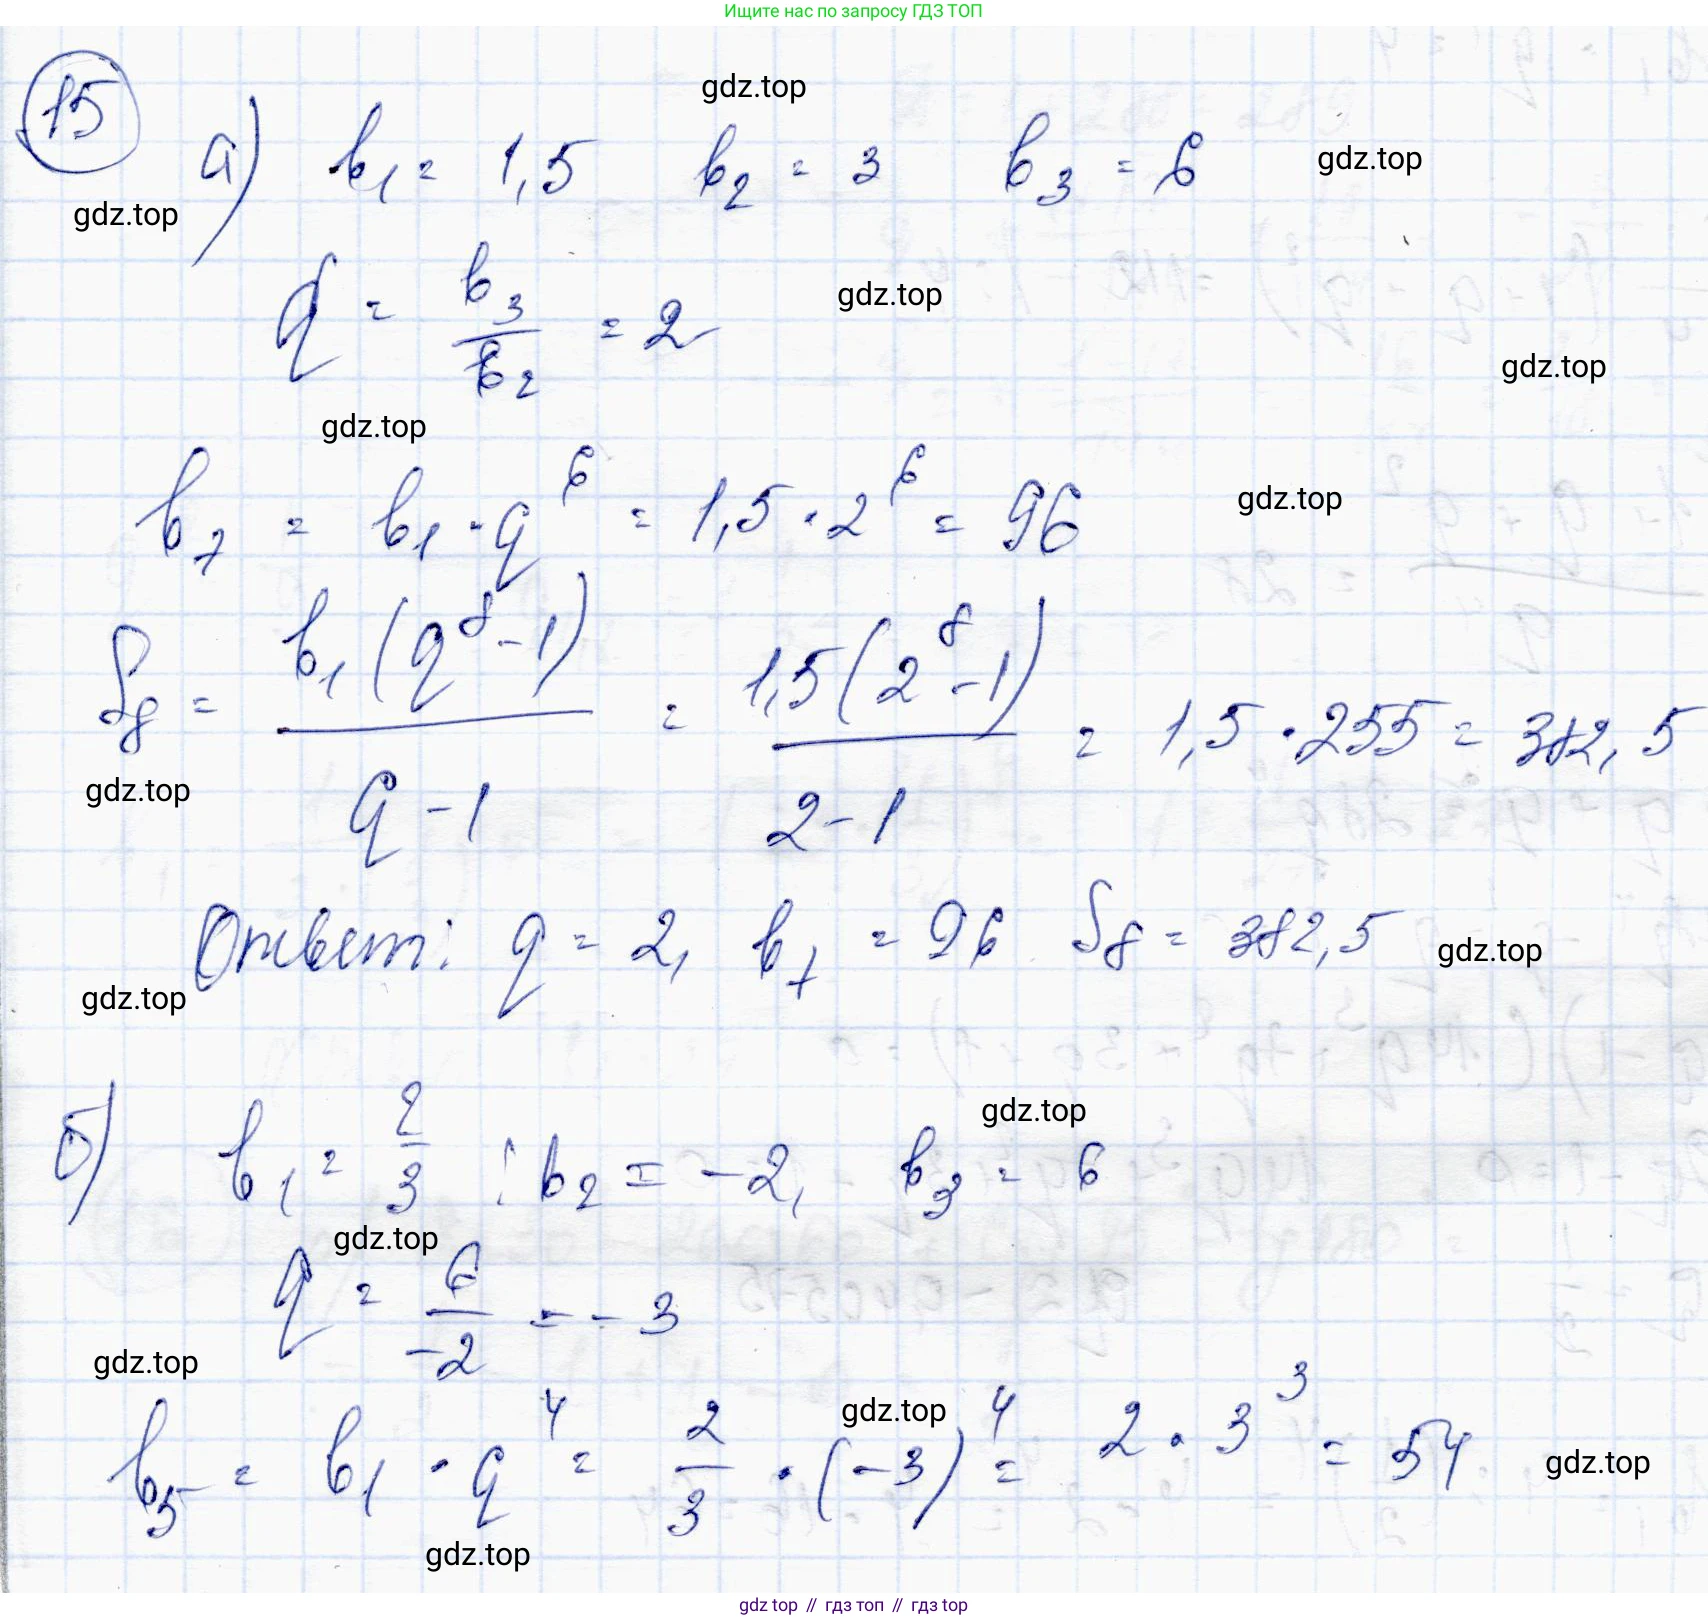 Ищите нас по запросу ГДЗ ТОП
15
gdz.top
а) b₁ = 1,5 b₂ = 3 b₃ = 6
gdz.top
gdz.top
q = b₃/b₂ = 2
gdz.top
gdz.top
gdz.top
b₇ = b₁ · q⁶ = 1,5 · 2⁶ = 96
gdz.top
S₈ = b₁(q⁸ - 1)/(q - 1) = 1,5(2⁸ - 1)/(2 - 1) = 1,5 · 255 = 382,5
gdz.top
Ответ: q = 2, b₇ = 96 S₈ = 382,5
gdz.top
gdz.top
gdz.top
б) b₁ = 2/3 ; b₂ = -2, b₃ = 6
gdz.top
q = 6/-2 = -3
gdz.top
gdz.top
b₅ = b₁ · q⁴ = 2/3 · (-3)⁴ = 2 · 3³ = 54
gdz.top
gdz.top
gdz top // гдз топ // гдз.top